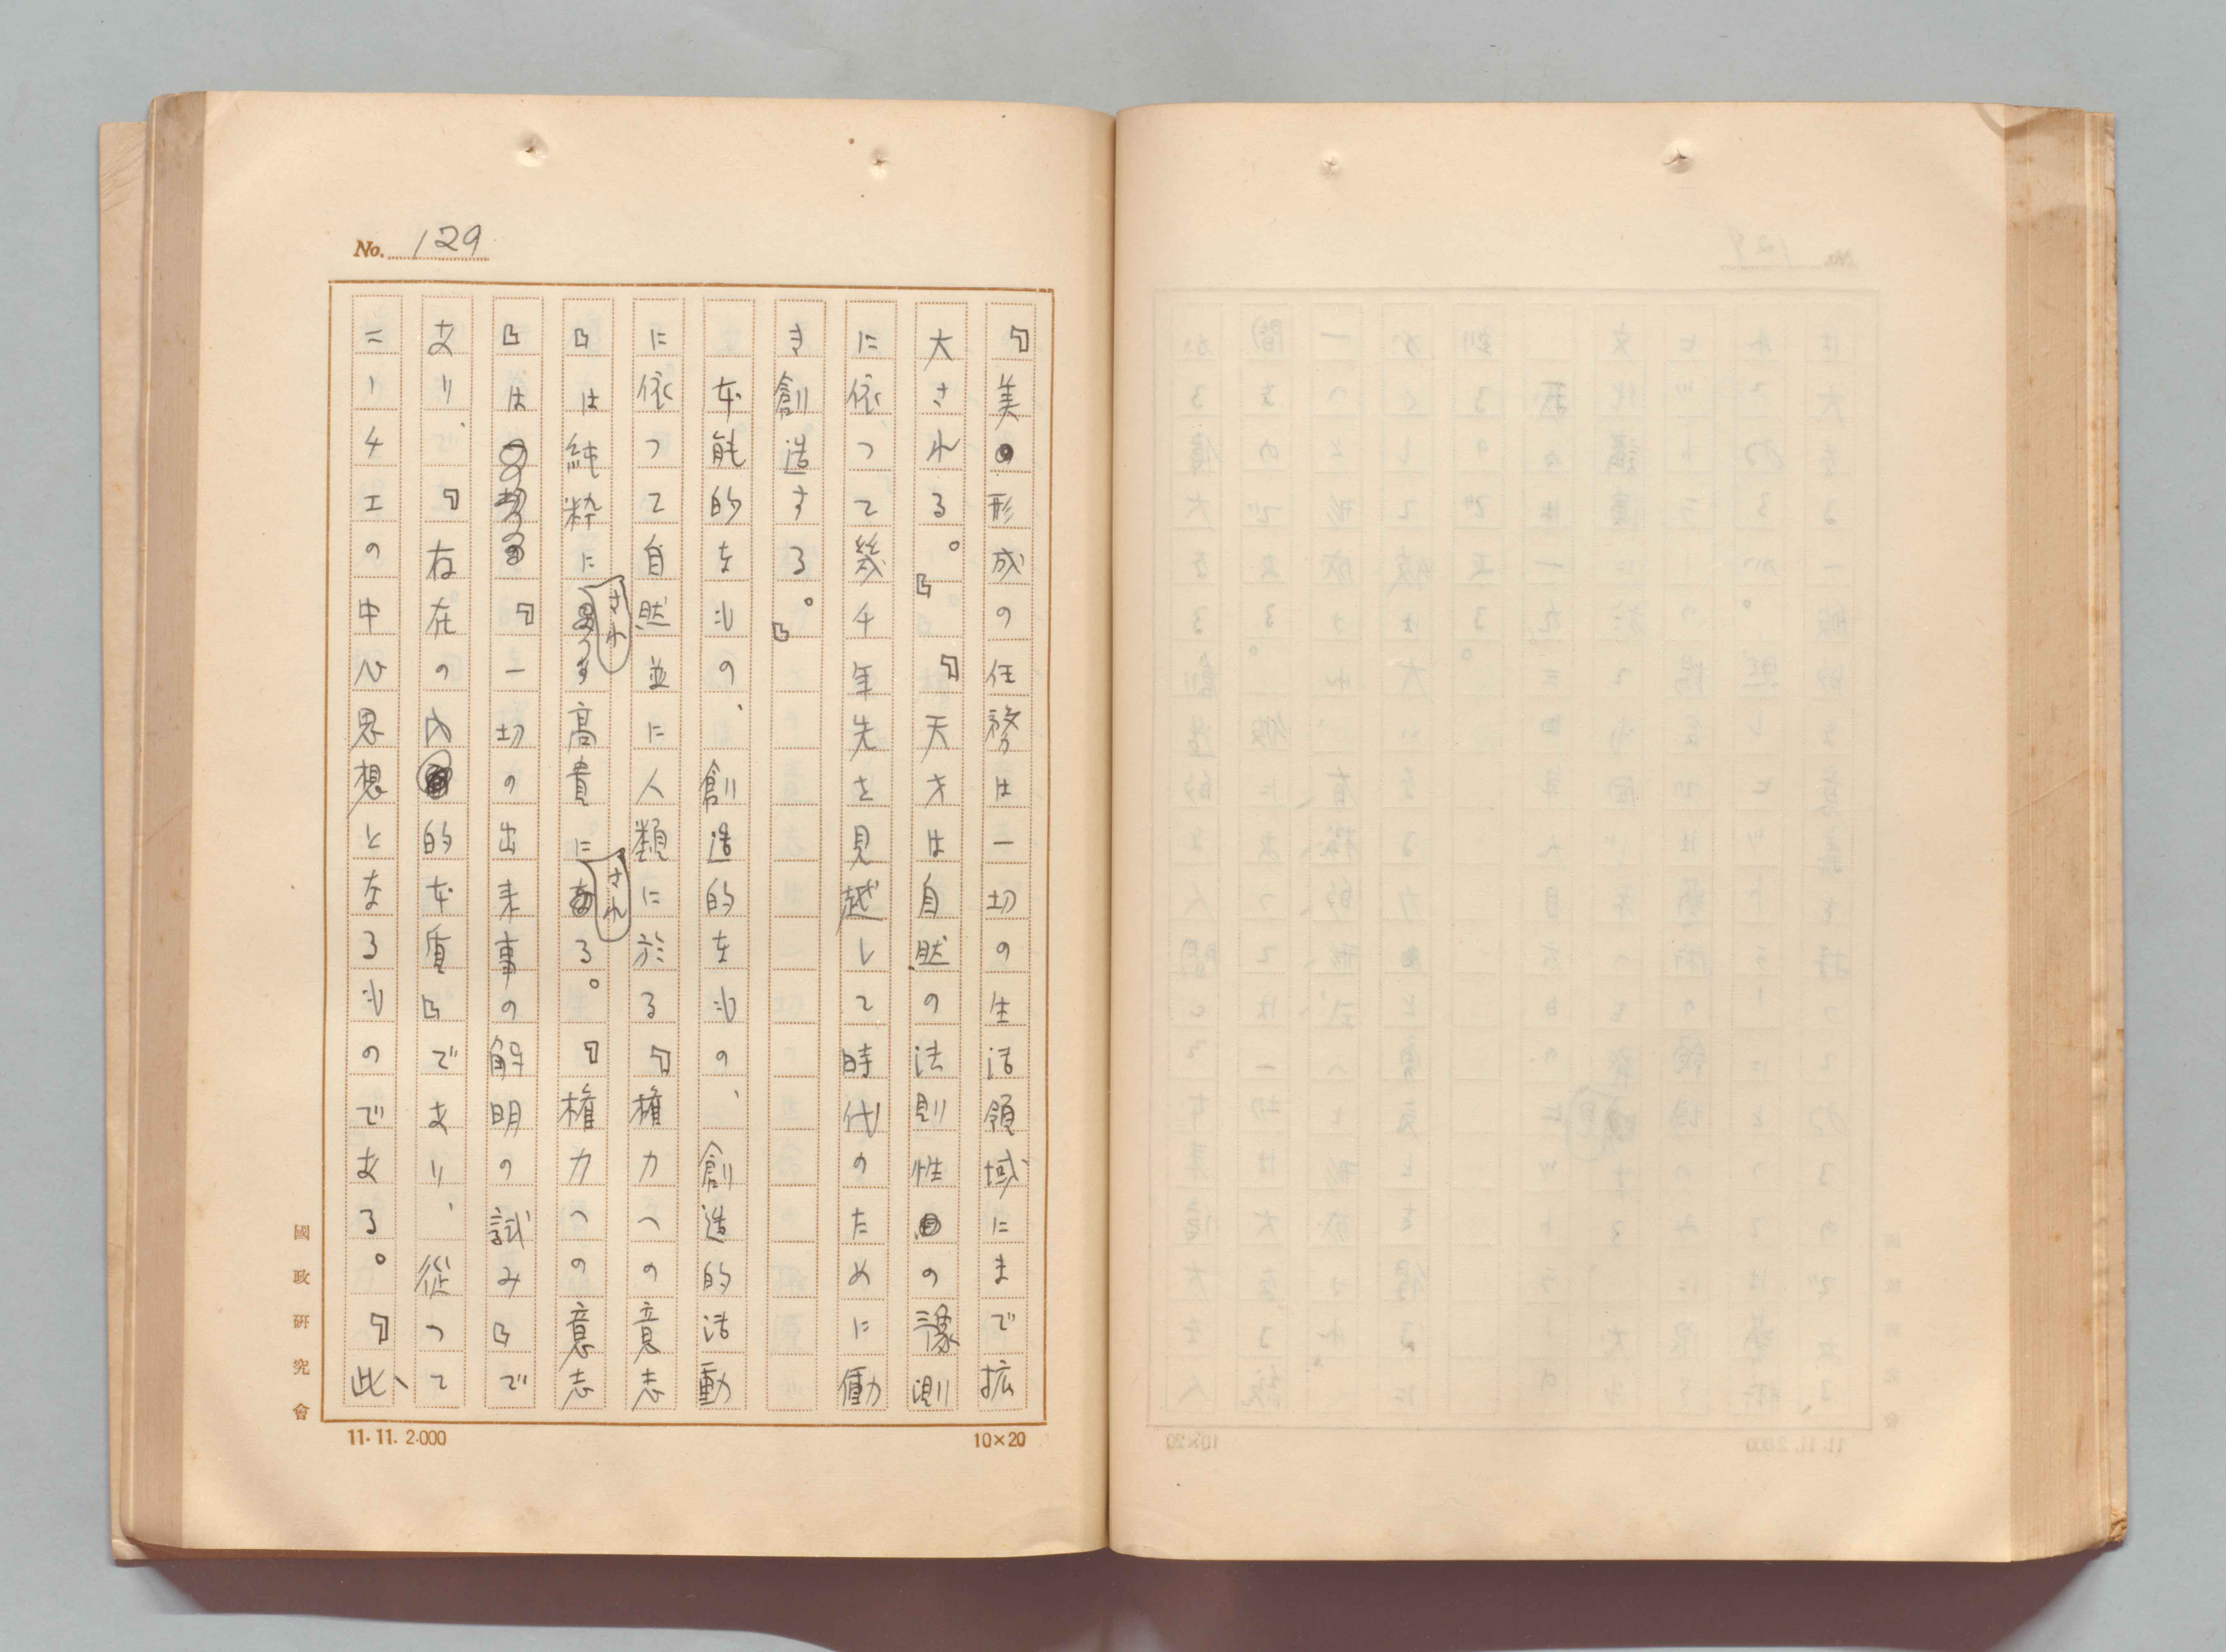 No. 129
『美の形成の任務は一切の生活領域にまで拡
大される。』『天才は自然の法則性の予測
に依つて幾千年先を見越して時代のために働
き創造する。』
本能的なもの、創造的なもの、創造的活動
に依つて自然並に人類に於る『権力への意志
』は純粋にされ高貴にされる。『権力への意志
』は『一切の出来事の解明の試み』で
あり、『存在の内的本質』であり、従つて
ニーチエの中心思想となるものである。『此
國政研究會
11.11. 2.000
10×20